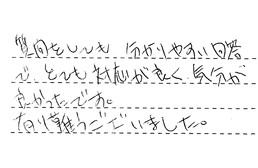 質問をしても、分かりやすい回答
で、とても対応が良く気分が
良かったです。
有り難うございました。